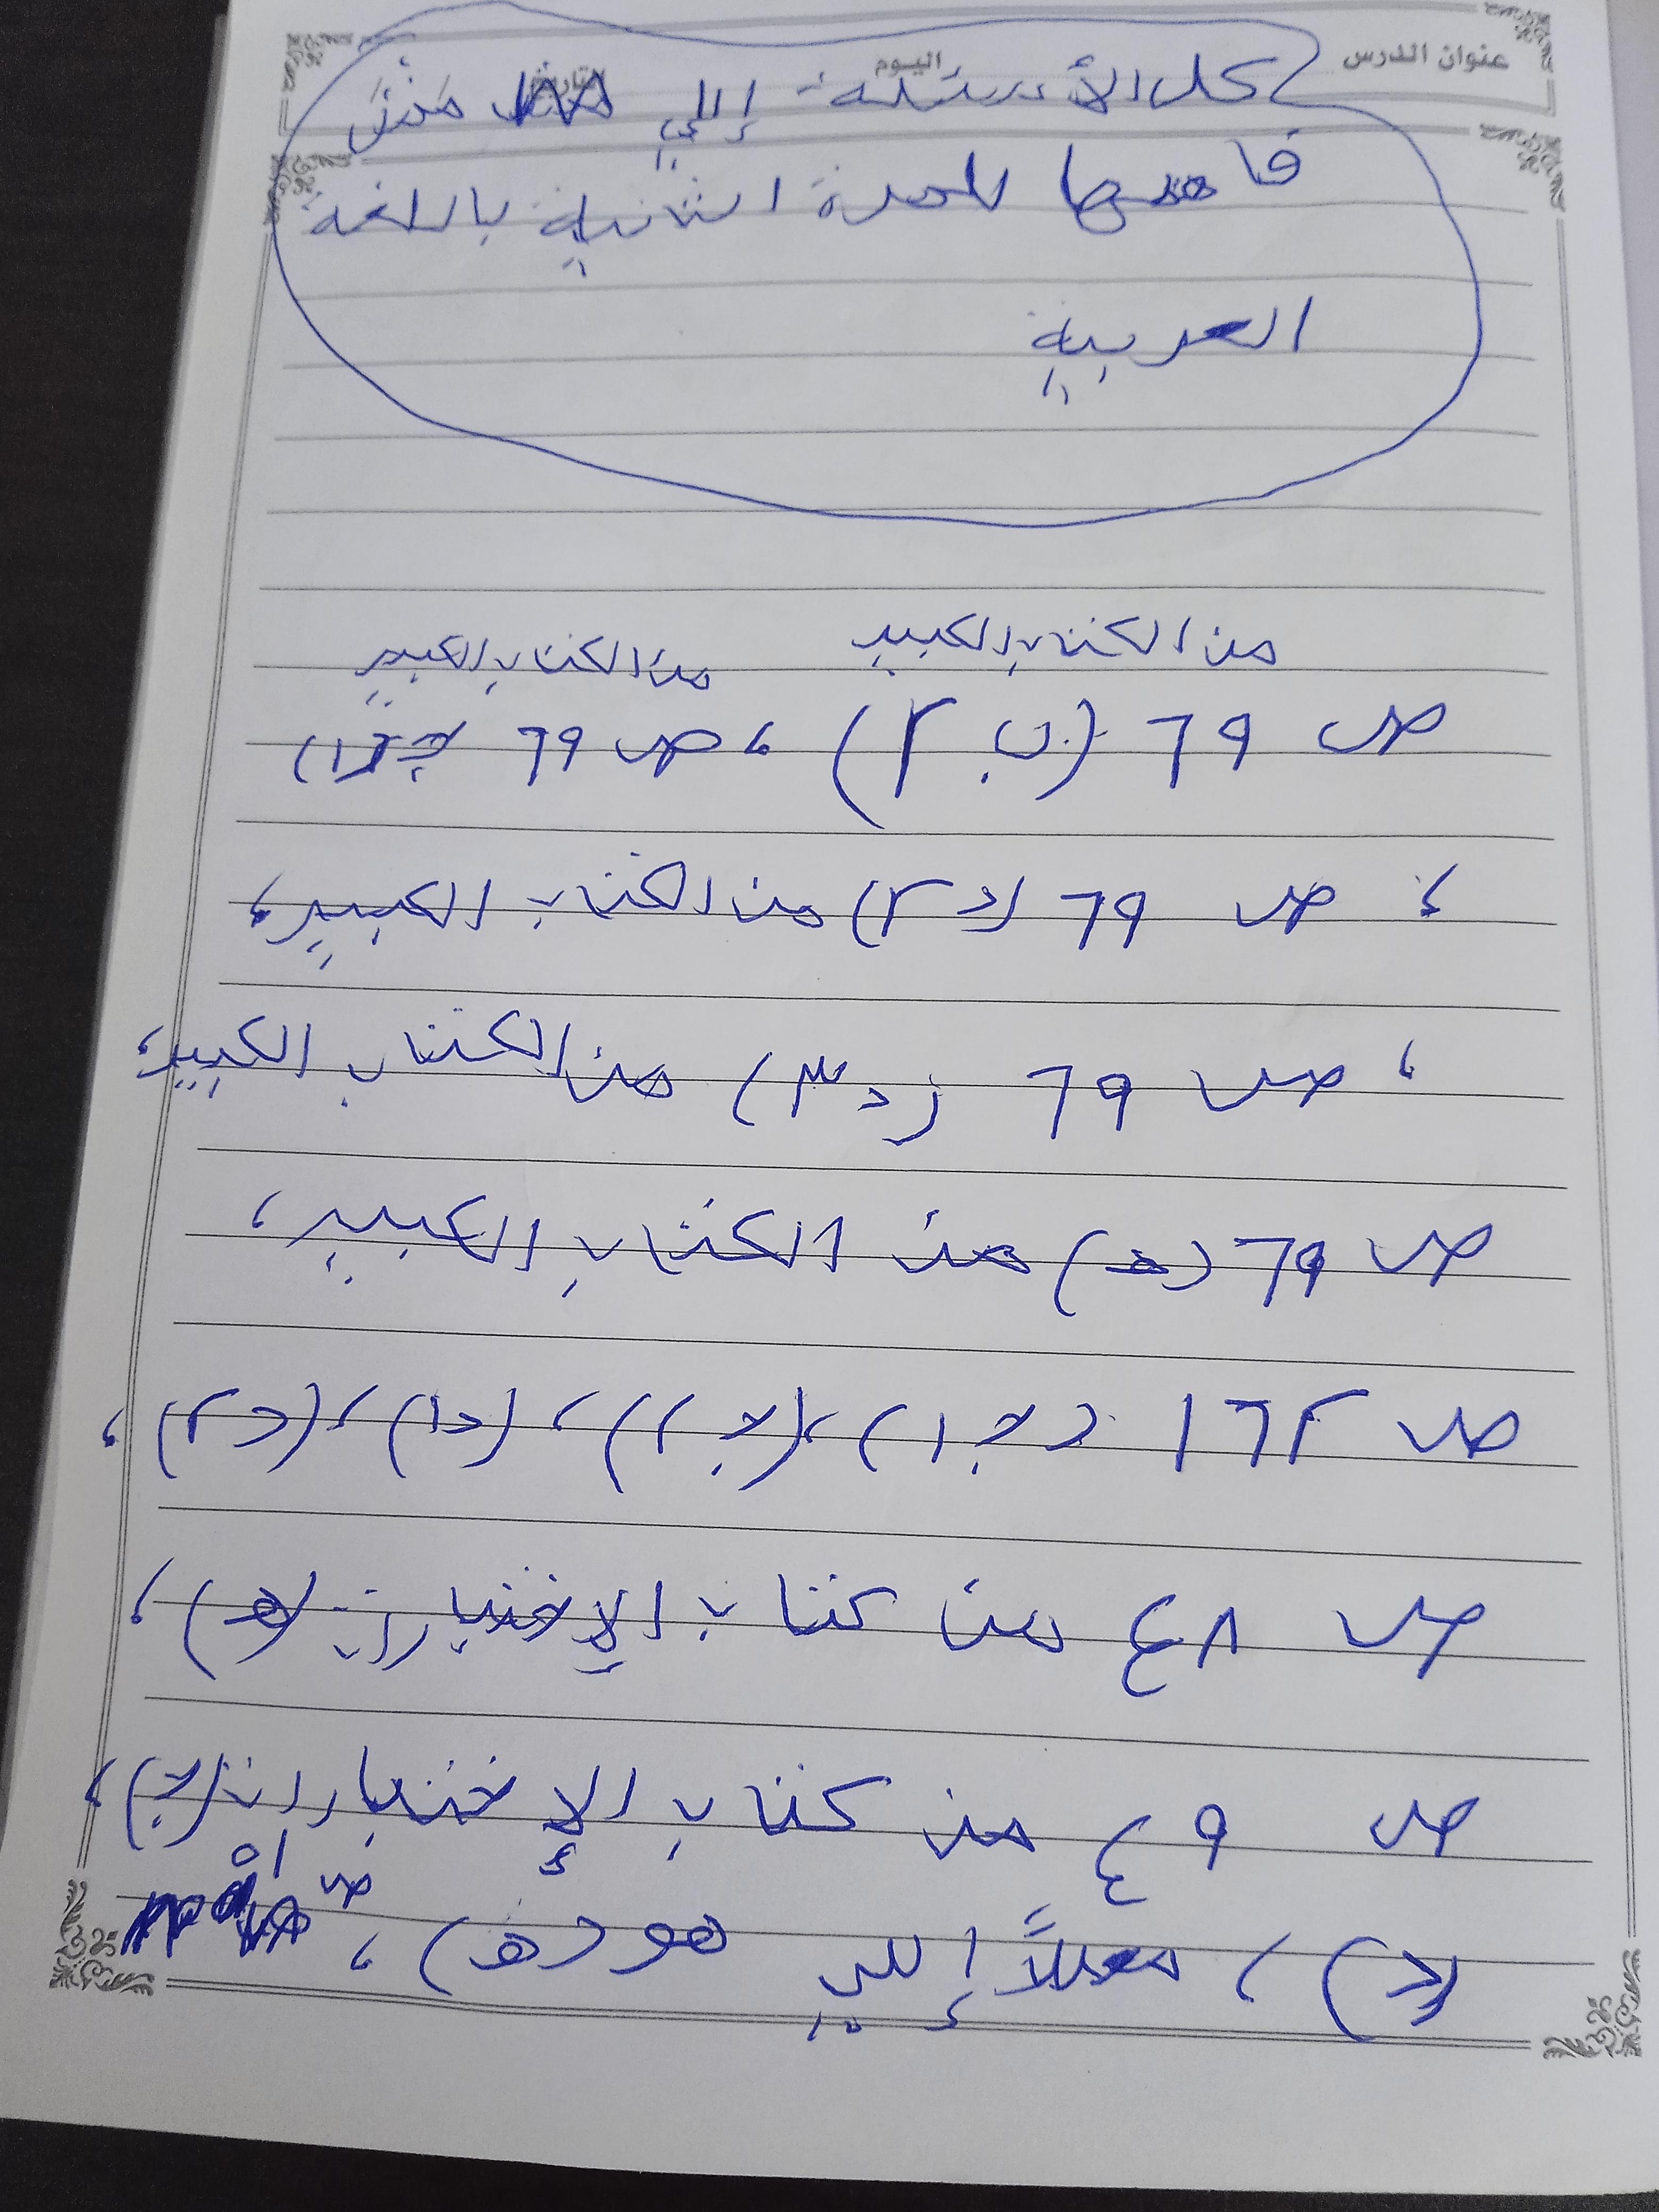 عنوان الدرس اليوم التاريخ
كل الأسئلة إللي مش
فاهمها للمرة الثانية باللغة
العربية
من الكتاب الكبير من الكتاب الكبير
ص ٦٩ (ب ٢) ، ص ٦٩
، ص ٦٩ (د ٢) من الكتاب الكبير ،
، ص ٦٩ (د ٣) من الكتاب الكبير ،
ص ٦٩ (هـ) من الكتاب الكبير ،
ص ١٦٢ (جـ ١) ، (جـ ٢) ، (د ١) ، (د ٢) ،
ص ٤٨ من كتاب الإختبارات (هـ) ،
ص ٤٩ من كتاب الإختبارات (جـ) ،
(د) ، معللاً إللي هو (هـ) ، ص ٥١